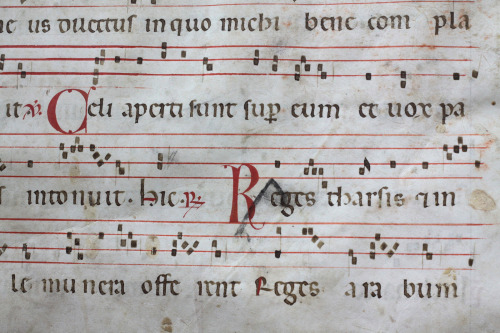 us dilectus in quo michi bene com pla
it Celi aperti sunt sup eum et uox pa
intonuit. Hic. Reges tharsis et in
le munera offe rent Reges ara bum